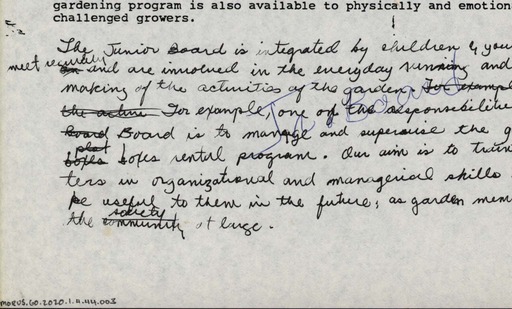 gardening program is also available to physically and emotion
challenged growers.
The Junior Board is integrated by children & you
meet regularly and are involved in the everyday running and
making of the activities of the garden. For exampl
the active For example, one of the responsibilitie
Board Board is to manage and supervise the g
plot
boxes boxes rental program. Our aim is to train
ters in organizational and managerial skills
be useful to them in the future; as garden mem
society
the community at large.
Jr. Board
MORUS.GO.2020.1.4.44.003